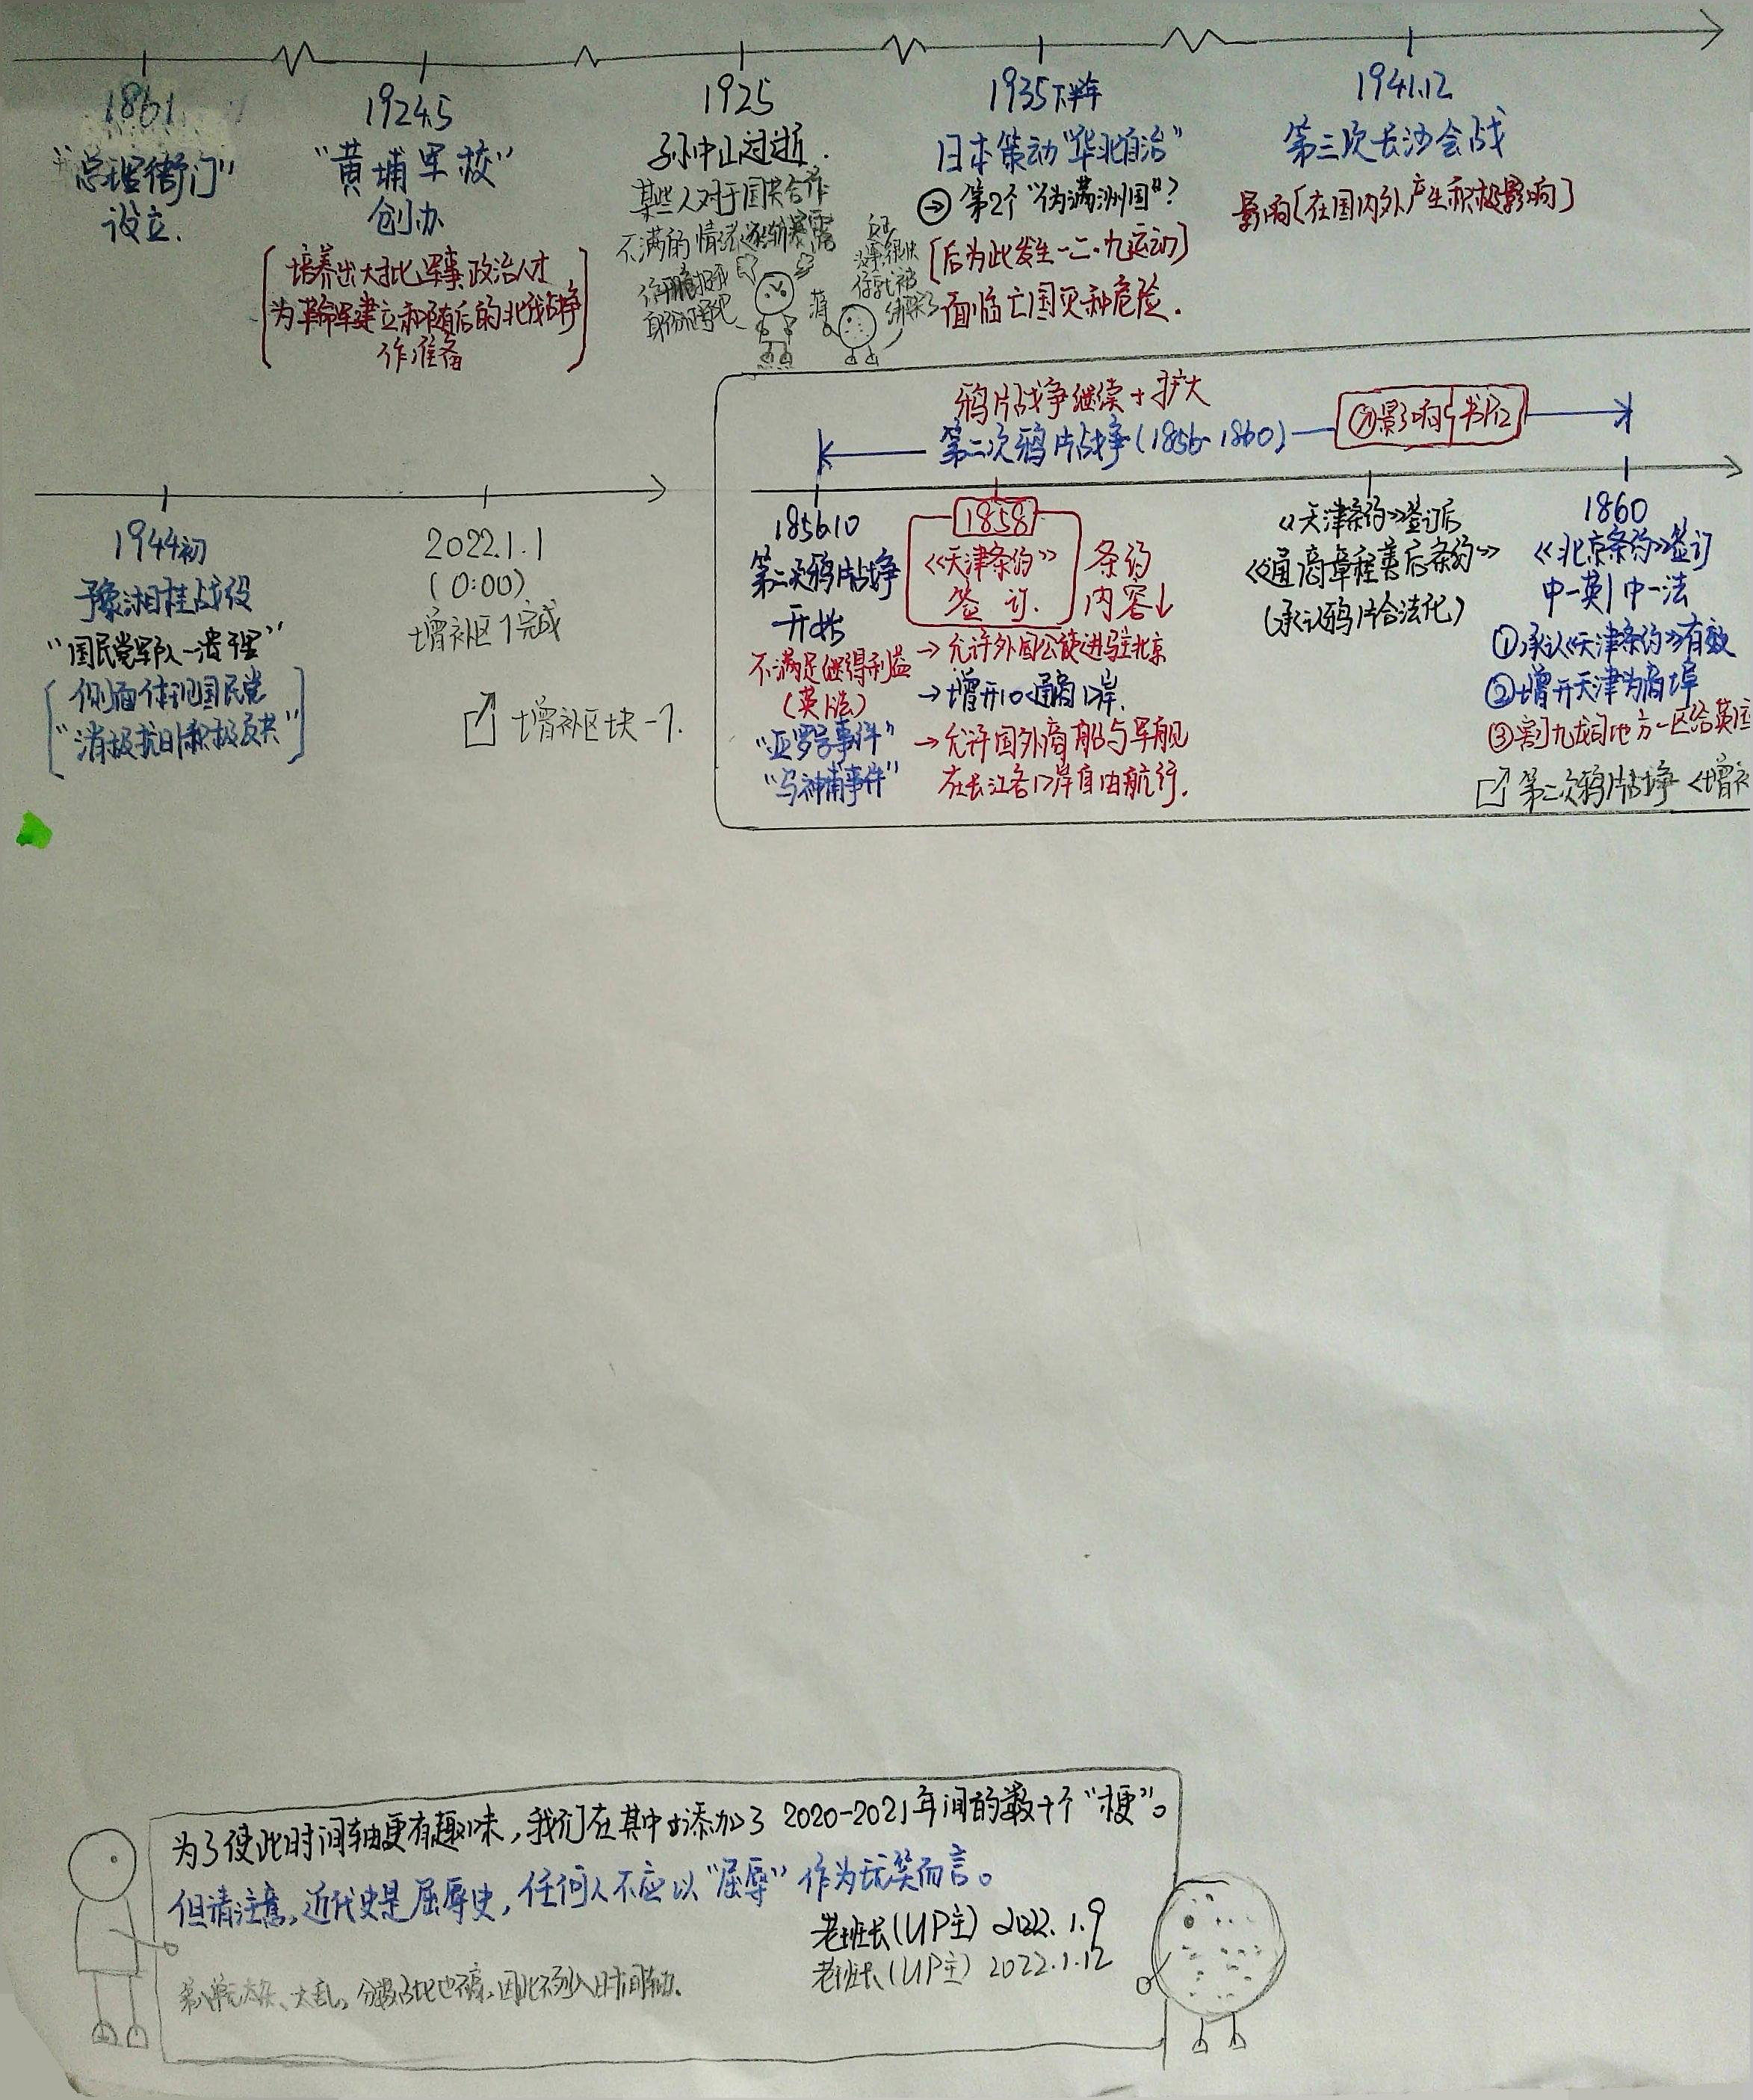 1861
"总理衙门"
设立.
1924.5
"黄埔军校"
创办
培养出大批军事政治人才
为革命军建立和随后的北伐战争
作准备
1925
孙中山过逝.
某些人对于国共合作
不满的情绪逐渐暴露
1935下半年
日本策动"华北自治"
→第2个"伪满洲国"?
[后为此发生一二·九运动]
面临亡国灭种危险.
1941.12
第三次长沙会战
影响[在国内外产生积极影响]
1944初
豫湘桂战役
"国民党军队一溃千里"
侧面体现国民党
"消极抗日积极反共"
2022.1.1
(0:00)
增补区1完成
增补区块-1.
鸦片战争继续+扩大
第二次鸦片战争(1856-1860)
影响 书P12
1856.10
第二次鸦片战争
开始
不满足继得利益
(英法)
"亚罗号事件"
"马神甫事件"
1858
《天津条约》
签订.
条约
内容↓
→允许外国公使进驻北京
→增开10个通商口岸.
→允许国外商船与军舰
在长江各口岸自由航行.
《天津条约》签订后
《通商章程善后条约》
(承认鸦片合法化)
1860
《北京条约》签订
中-英|中-法
①承认《天津条约》有效
②增开天津为商埠
③割九龙司地方一区给英
第二次鸦片战争<增补
为了使此时间轴更有趣味,我们在其中添加了2020-2021年间的数十个"梗"。
但请注意,近代史是屈辱史,任何人不应以"屈辱"作为玩笑而言。
老班长(UP主) 2022.1.9
老班长(UP主) 2022.1.12
因此不列入时间轴.